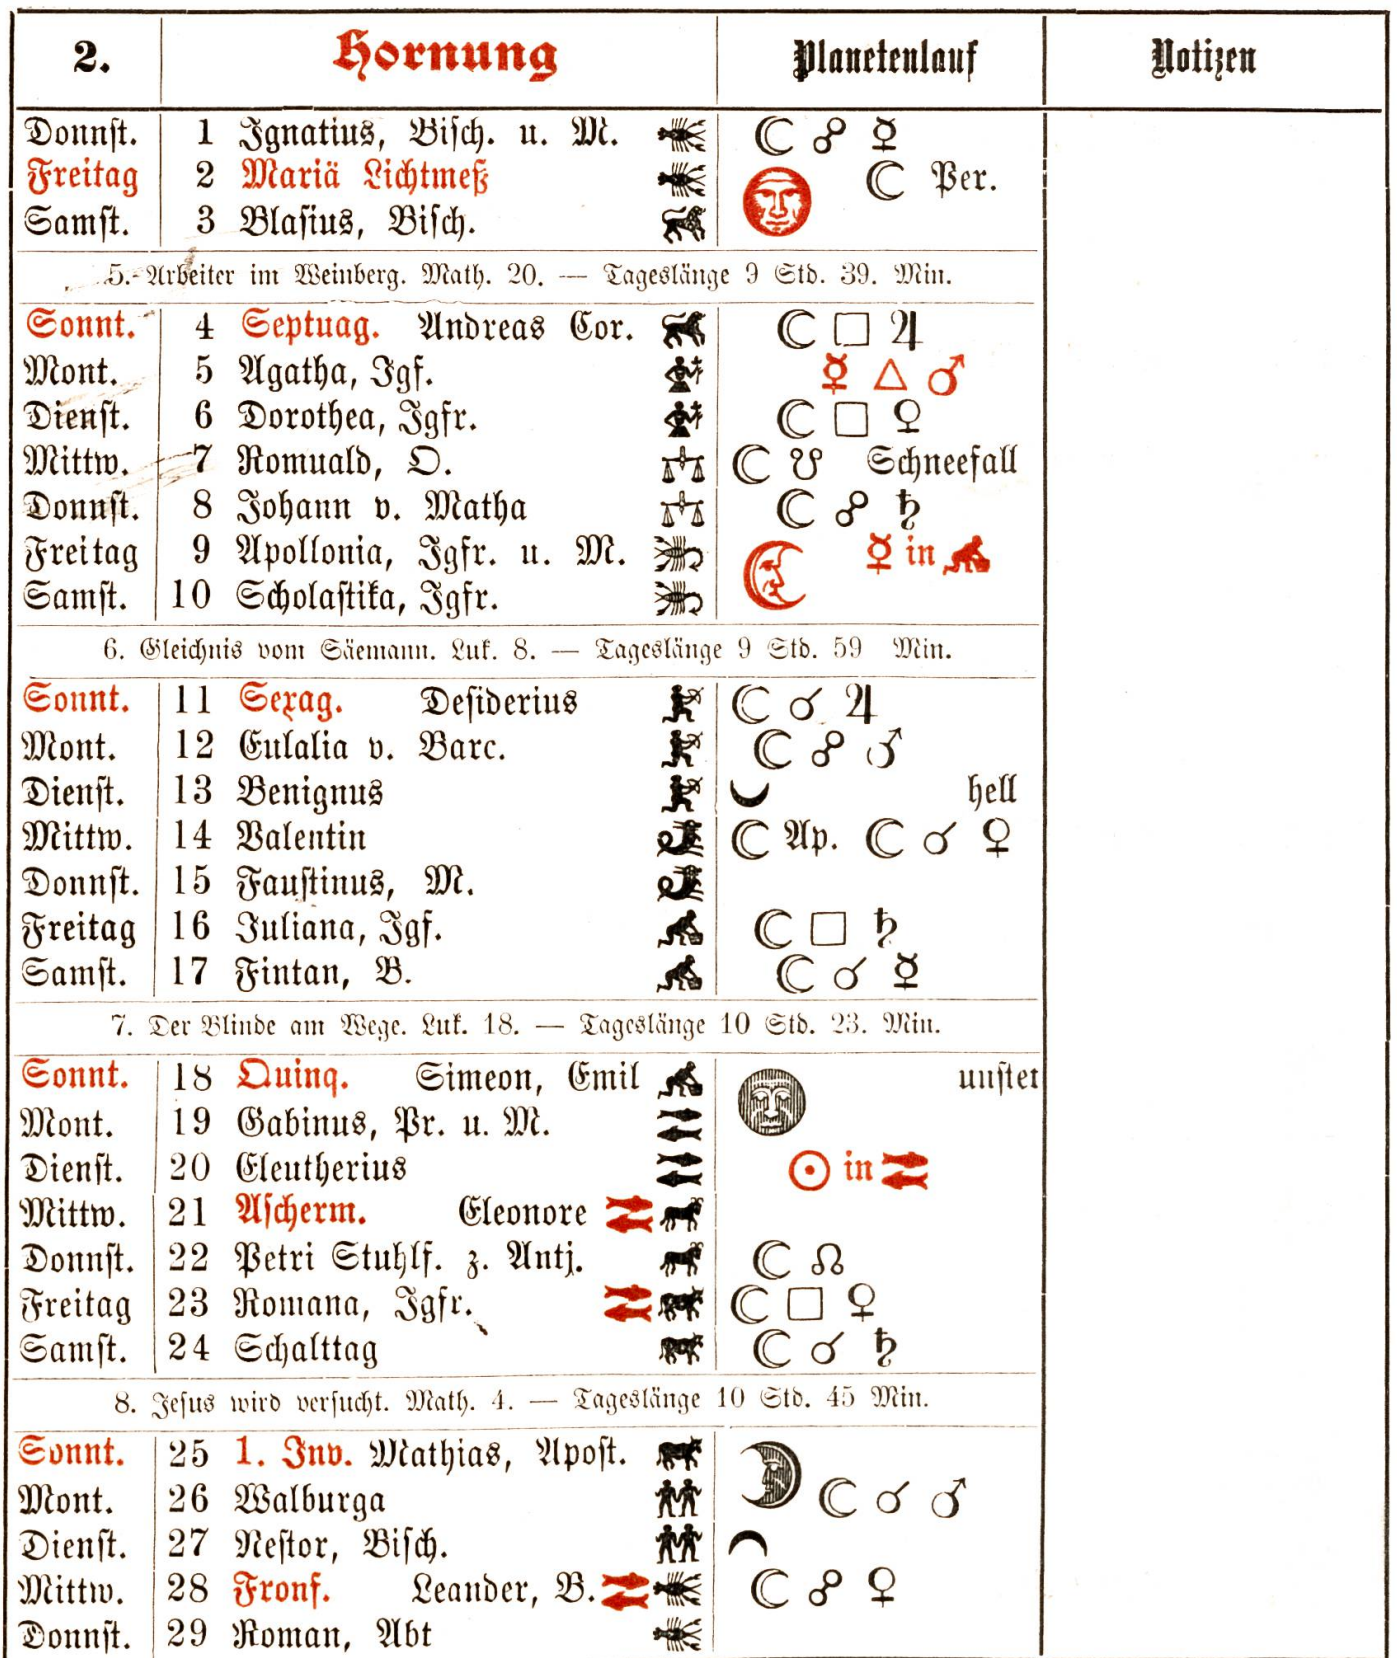 2. Hornung Planetenlauf Notizen
Donnst. 1 Ignatius, Bisch. u. M. ☾ ☍ ☿
Freitag 2 Mariä Lichtmeß ☾ Per.
Samst. 3 Blasius, Bisch.
5. Arbeiter im Weinberg. Math. 20. — Tageslänge 9 Std. 39. Min.
Sonnt. 4 Septuag. Andreas Cor. ☾ □ ♃
Mont. 5 Agatha, Jgf. ☿ △ ♂
Dienst. 6 Dorothea, Jgfr. ☾ □ ♀
Mittw. 7 Romuald, O. ☾ ☋ Schneefall
Donnst. 8 Johann v. Matha ☾ ☍ ♄
Freitag 9 Apollonia, Jgfr. u. M. ☿ in
Samst. 10 Scholastika, Jgfr.
6. Gleichnis vom Säemann. Luk. 8. — Tageslänge 9 Std. 59 Min.
Sonnt. 11 Sexag. Desiderius ☾ ☌ ♃
Mont. 12 Eulalia v. Barc. ☾ ☍ ♂
Dienst. 13 Benignus hell
Mittw. 14 Valentin ☾ Ap. ☾ ☌ ♀
Donnst. 15 Faustinus, M.
Freitag 16 Juliana, Jgf. ☾ □ ♄
Samst. 17 Fintan, B. ☾ ☌ ☿
7. Der Blinde am Wege. Luk. 18. — Tageslänge 10 Std. 23. Min.
Sonnt. 18 Quinq. Simeon, Emil unstet
Mont. 19 Gabinus, Pr. u. M.
Dienst. 20 Eleutherius ☉ in
Mittw. 21 Ascherm. Eleonore
Donnst. 22 Petri Stuhlf. z. Antj. ☾ ☊
Freitag 23 Romana, Jgfr. ☾ □ ♀
Samst. 24 Schalttag ☾ ☌ ♄
8. Jesus wird versucht. Math. 4. — Tageslänge 10 Std. 45 Min.
Sonnt. 25 1. Inv. Mathias, Apost.
Mont. 26 Walburga ☾ ☌ ♂
Dienst. 27 Nestor, Bisch.
Mittw. 28 Fronf. Leander, B. ☾ ☍ ♀
Donnst. 29 Roman, Abt